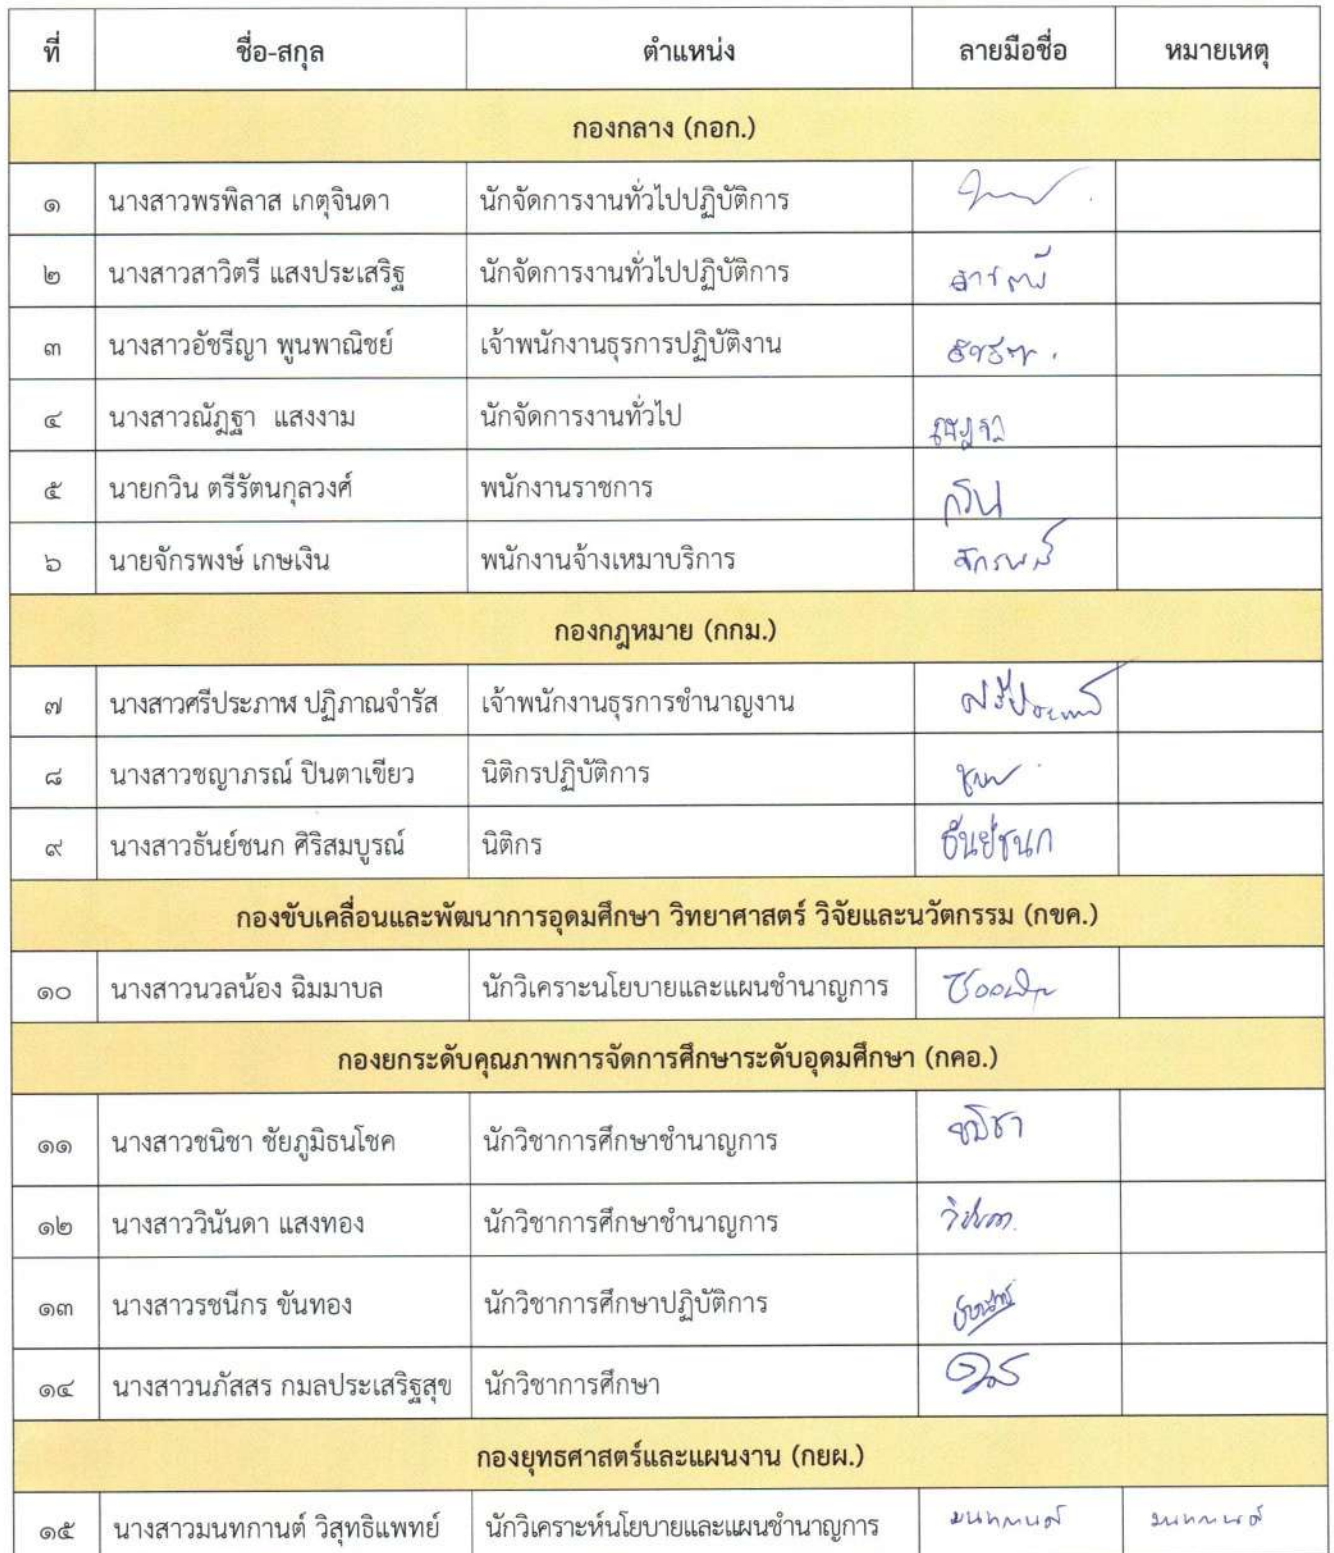 ที่ ชื่อ-สกุล ตำแหน่ง ลายมือชื่อ หมายเหตุ
กองกลาง (กอก.)
๑ นางสาวพรพิลาส เกตุจินดา นักจัดการงานทั่วไปปฏิบัติการ
๒ นางสาวสาวิตรี แสงประเสริฐ นักจัดการงานทั่วไปปฏิบัติการ
๓ นางสาวอัชรีญา พูนพาณิชย์ เจ้าพนักงานธุรการปฏิบัติงาน
๔ นางสาวณัฏฐา แสงงาม นักจัดการงานทั่วไป ณัฏฐา
๕ นายกวิน ตรีรัตนกุลวงศ์ พนักงานราชการ กวิน
๖ นายจักรพงษ์ เกษเงิน พนักงานจ้างเหมาบริการ จักรพงษ์
กองกฎหมาย (กกม.)
๗ นางสาวศรีประภาฬ ปฏิภาณจำรัส เจ้าพนักงานธุรการชำนาญงาน
๘ นางสาวชญาภรณ์ ปินตาเขียว นิติกรปฏิบัติการ
๙ นางสาวธันย์ชนก ศิริสมบูรณ์ นิติกร ธันย์ชนก
กองขับเคลื่อนและพัฒนาการอุดมศึกษา วิทยาศาสตร์ วิจัยและนวัตกรรม (กขค.)
๑๐ นางสาวนวลน้อง ฉิมมาบล นักวิเคราะนโยบายและแผนชำนาญการ
กองยกระดับคุณภาพการจัดการศึกษาระดับอุดมศึกษา (กคอ.)
๑๑ นางสาวชนิชา ชัยภูมิธนโชค นักวิชาการศึกษาชำนาญการ ชนิชา
๑๒ นางสาววินันดา แสงทอง นักวิชาการศึกษาชำนาญการ
๑๓ นางสาวรชนีกร ขันทอง นักวิชาการศึกษาปฏิบัติการ
๑๔ นางสาวนภัสสร กมลประเสริฐสุข นักวิชาการศึกษา
กองยุทธศาสตร์และแผนงาน (กยผ.)
๑๕ นางสาวมนทกานต์ วิสุทธิแพทย์ นักวิเคราะห์นโยบายและแผนชำนาญการ มนทกานต์ มนทกานต์